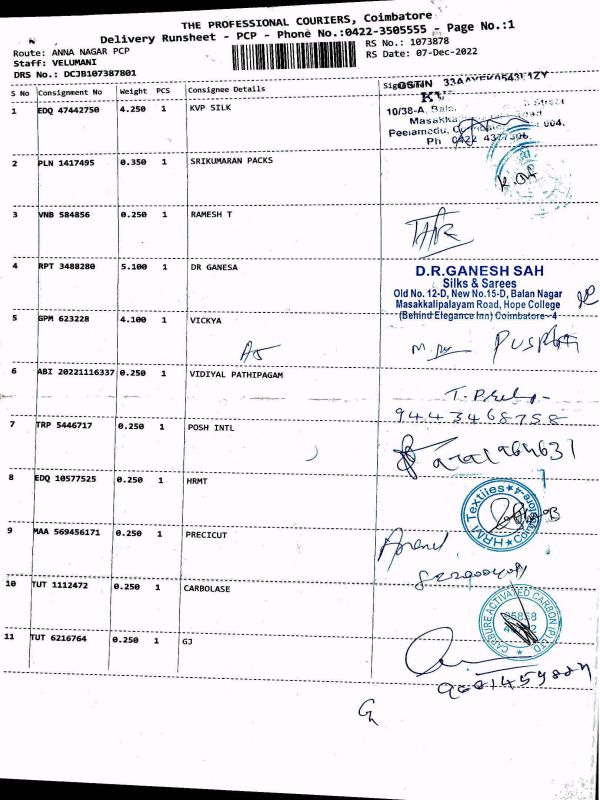 THE PROFESSIONAL COURIERS, Coimbatore
Delivery Runsheet - PCP - Phone No.:0422-3505555 - Page No.:1
Route: ANNA NAGAR PCP
RS No.: 1073878
Staff: VELUMANI
RS Date: 07-Dec-2022
DRS No.: DCJB107387801
S No Consignment No Weight PCS Consignee Details
1 EDQ 47442750 4.250 1 KVP SILK
GSTIN
10/38-A,
Street
Road
Peelamedu,
004.
Ph
2 PLN 1417495 0.350 1 SRIKUMARAN PACKS
3 VNB 584856 0.250 1 RAMESH T
4 RPT 3488280 5.100 1 DR GANESA
D.R.GANESH SAH
Silks & Sarees
Old No. 12-D, New No.15-D, Balan Nagar
Masakkalipalayam Road, Hope College
(Behind Elegance Inn) Coimbatore-4
5 GPM 623228 4.100 1 VICKYA
PUSPA
6 ABI 20221116337 0.250 1 VIDIYAL PATHIPAGAM
9443468758
7 TRP 5446717 0.250 1 POSH INTL
8 EDQ 10577525 0.250 1 HRMT
HRM Textiles
9 MAA 569456171 0.250 1 PRECICUT
10 TUT 1112472 0.250 1 CARBOLASE
CARBURE ACTIVATED CARBON (P) LTD
11 TUT 6216764 0.250 1 GJ